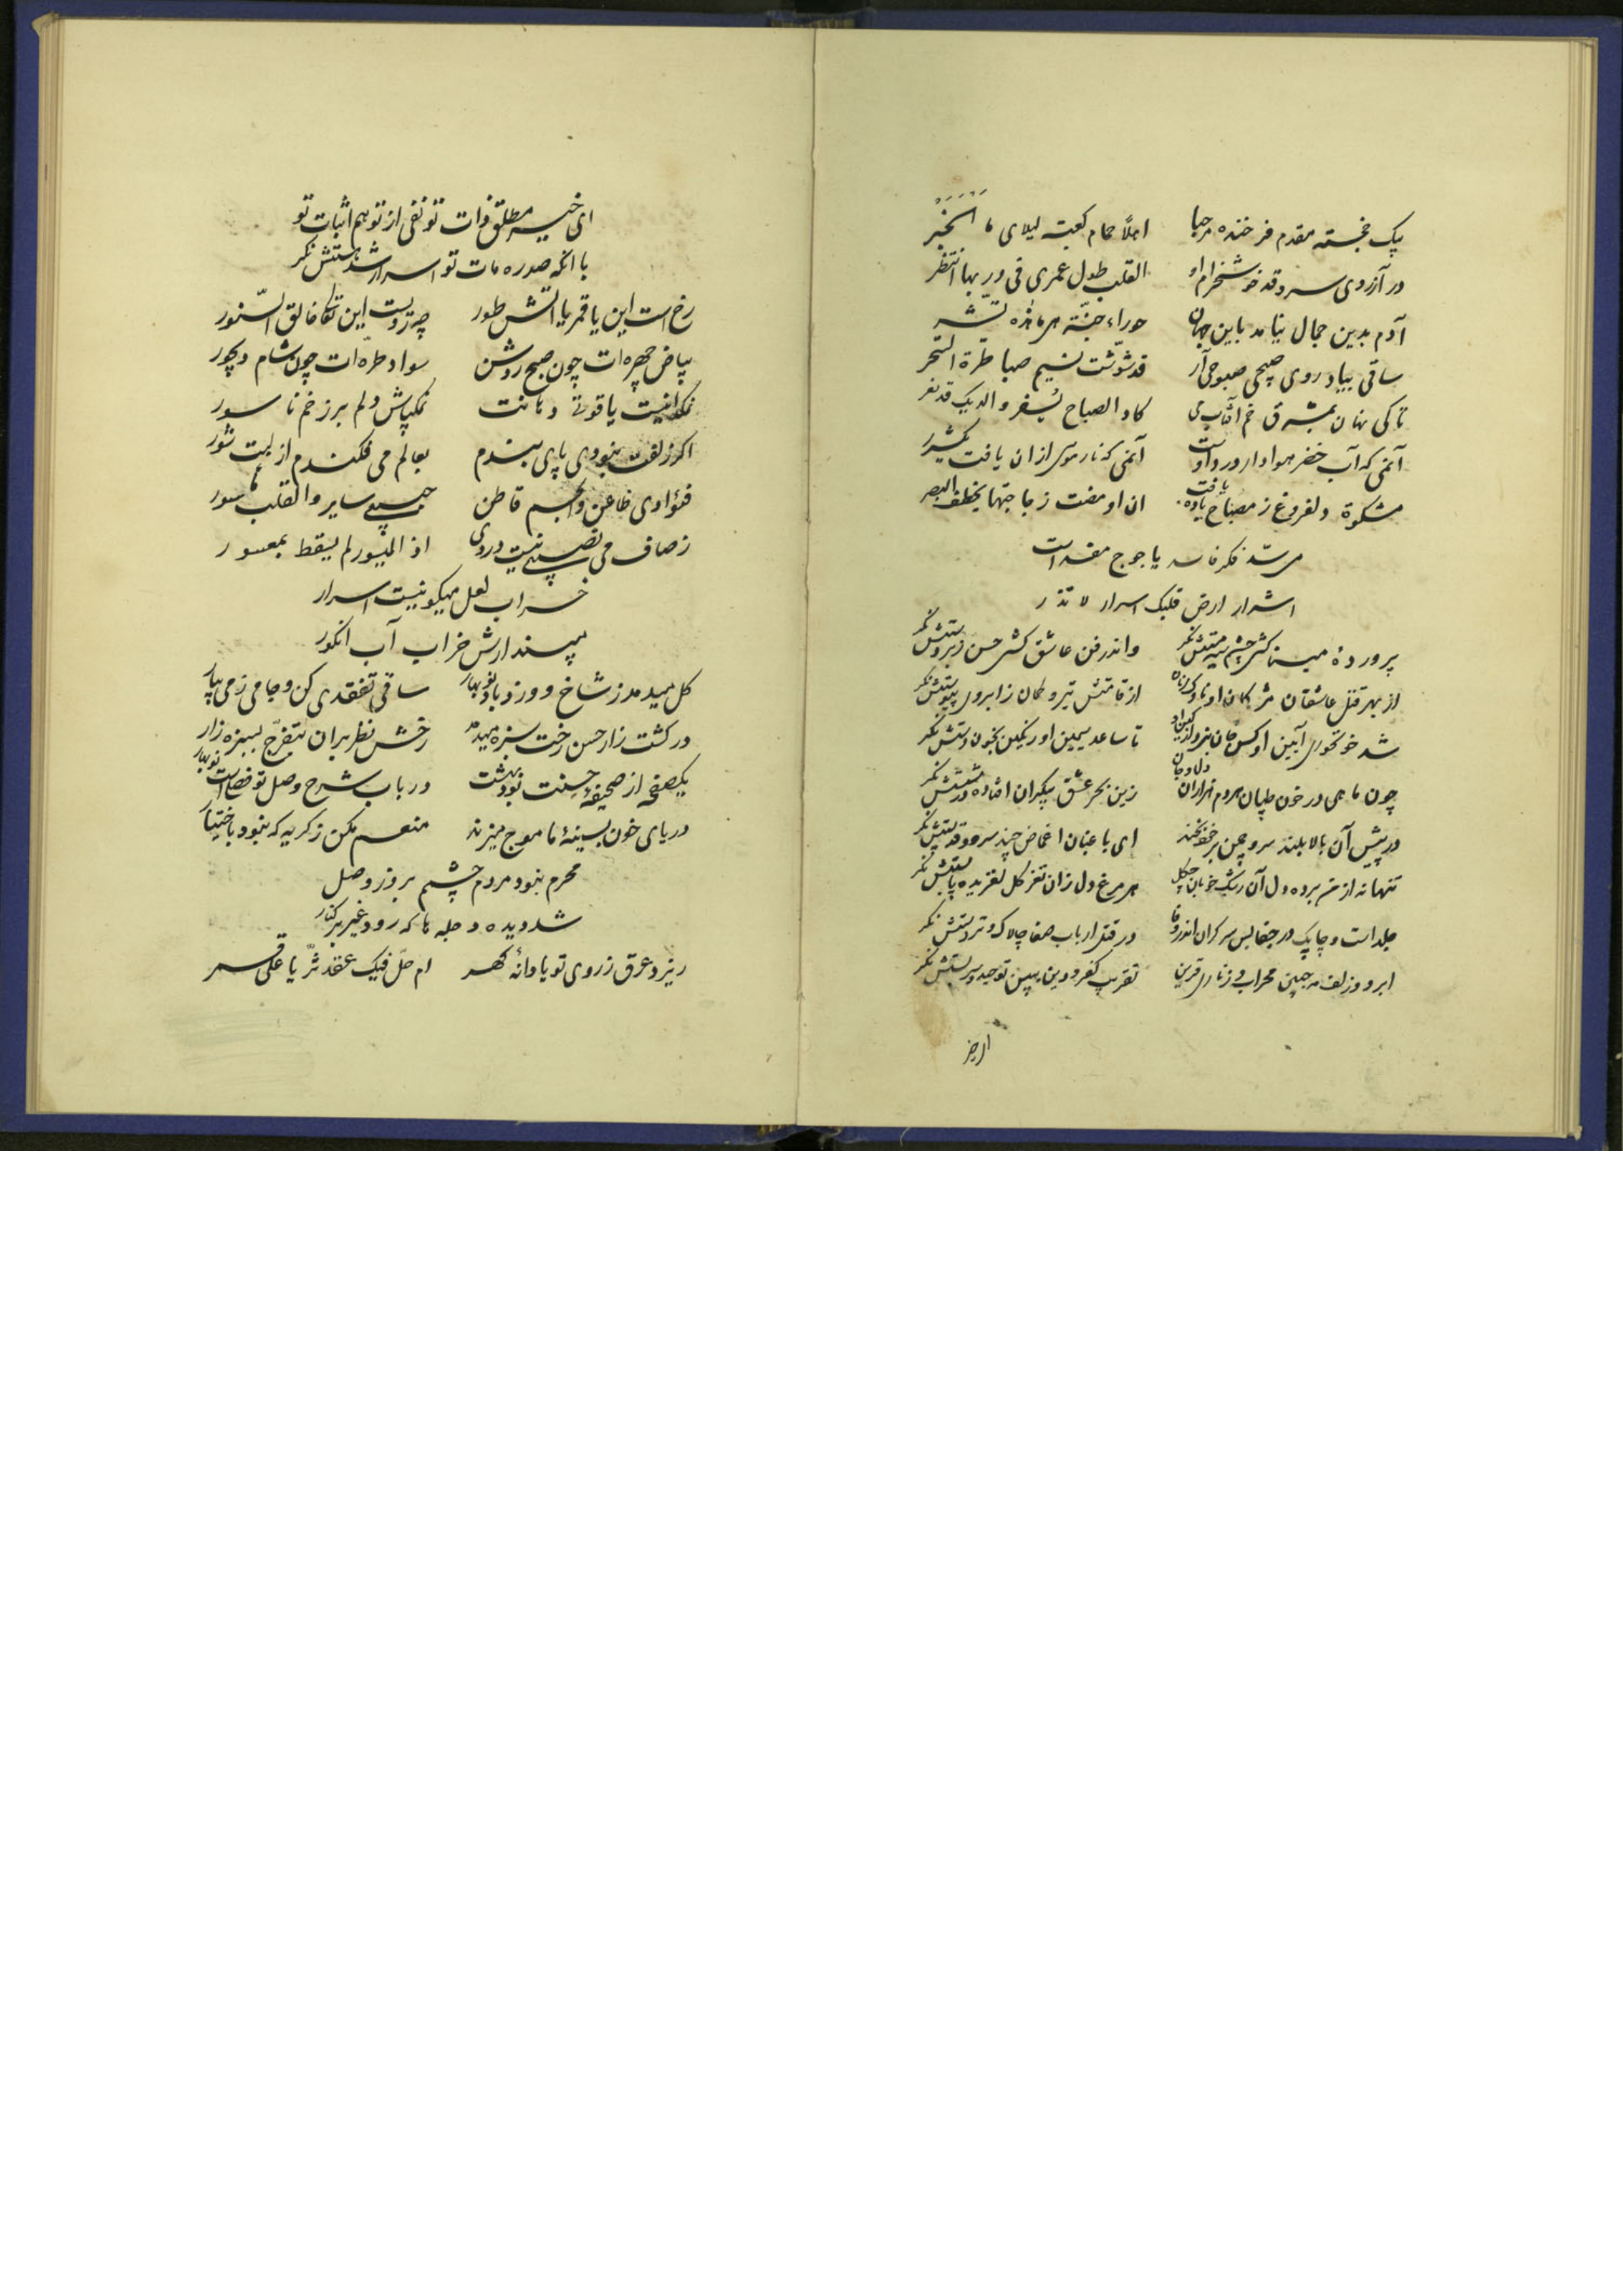 پیک خجسته مقدم فرخنده مرحبا اهلاً حمام کعبة لیلای ما الخبر
در آرزوی سرو قد خوشخرام او القلب طول عمری فی دربها انتظر
آدم بدین جمال نیامد باین جهان حوراء جنّة هی ما هذه بشر
ساقی بیاد روی صبیحی صبوحی آر قد شوّشت نسیم صبا طرّة السّحر
تا کی نهان بمشرق خم آفتاب می کاد الصباح یسفر والدیک قد نفر
آن می که آب خضر هوادار درد اوست آن می که نار موسی از آن یافت یکشرر
مشکوة دلفروغ ز مصباح باده یافت ان اومضت زجاجتها یخطف البصر
می سد فکر فاسد یاجوج مفسد است
اشرار ارض قلبک اسرار لا تذر
پروردهٔ میناکشی چشم سیه مستش نگر واندر فن عاشق کشی حسن زبردستش نگر
از بهر قتل عاشقان مژگان او ناوک زنان از قامتش تیر و کمان ز ابروی پیوستش نگر
شد خونخوری آیین او کس جان نبرد از کین او تا ساعد سیمین او رنگین بخون دستش نگر
چون ماهی در خون طپان هردم هزاران دل و جان زین بحر عشق بیکران افتاده در شستش نگر
در پیش آن بالا بلند سرو چمن بر خود مخند ای باغبان اغماض چند سرو و قد پستش نگر
تنها نه از من برده دل آن رشک خوبان چگل هر مرغ دل زان نغز گل لغزیده پا بستش نگر
جلد است و چابک در جفا بس سرگران اندر وفا در قتل ارباب صفا چالاک و تردستش نگر
ابرو و زلف مه جبین محراب و زناری قرین تقریب کفر و دین ببین توحید پیوستش نگر
ای خیر مطلق ذات تو نفی از تو هم اثبات تو
با آنکه صد ره مات تو اسرار شد هستش نگر
رخ است این یا قمر یا آتش طور چه رویست این تعالی خالق النّور
بیاض چهره‌ات چون صبح روشن سواد طرّه‌ات چون شام دیجور
نمکدانیست یاقوتی دهانت نمکپاش دلم بر زخم ناسور
اگر زلفت نبودی پای بندم بعالم می فکندم از لبت شور
فؤادی ظاعن والجسم قاطن حبیبی سایر والقلب مأسور
ز صاف می نصیبی نیست دردی اذ المیسور لم یسقط بمعسور
خراب لعل میگونیست اسرار
مپندارش خراب آب انگور
گل میدمد ز شاخ و وزد باد نوبهار ساقی تفقدی کن و جامی ز می بیار
در کشت زار حسن رخت سبزه میدمد رخش نظر بران بتفرّج بسبزه زار
یکصفحه از صحیفهٔ حسنت بود بهشت در باب شرح وصل تو فصلیست نوبهار
دریای خون بسینهٔ ما موج میزند منعم مکن ز گریه که نبود باختیار
محرم نبود مردم چشمم بروز وصل
شد دیده دجله ها که رود غیر بر کنار
ریزد عرق ز روی تو یا دانهٔ گهر ام حلّ فیک عقد ثرّیا علی قمر